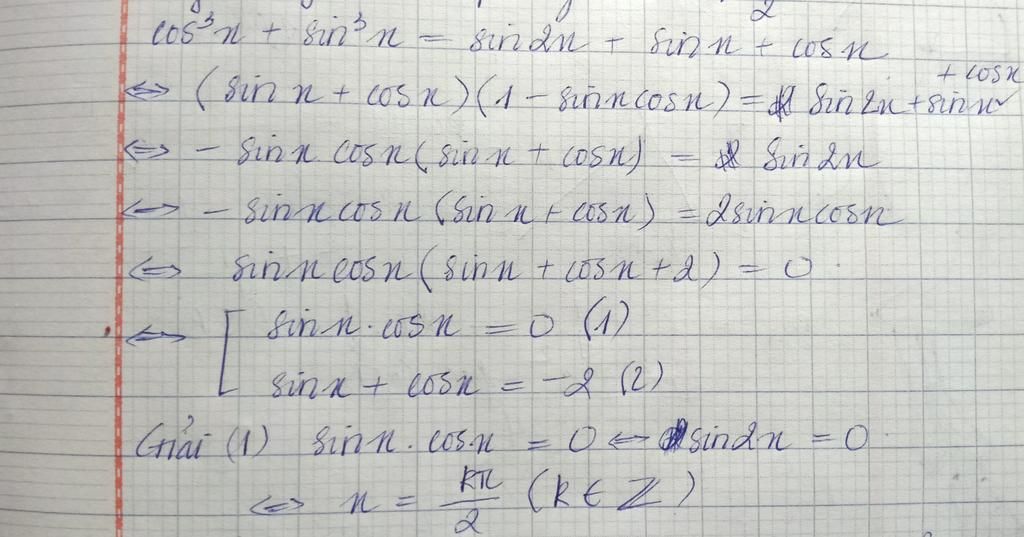 2
cos³x + sin³x = sin2x + sinx + cosx
⇔ (sinx + cosx)(1 - sinxcosx) = sin2x + sinx + cosx
⇔ - sinx cosx(sinx + cosx) = sin2x
⇔ - sinxcosx (sinx + cosx) = 2sinxcosx
⇔ sinxcosx(sinx + cosx + 2) = 0
⇔ [ sinx.cosx = 0 (1)
sinx + cosx = -2 (2)
Giải (1) sinx.cosx = 0 ⇔ sin2x = 0
⇔ x = kπ/2 (k ∈ Z)